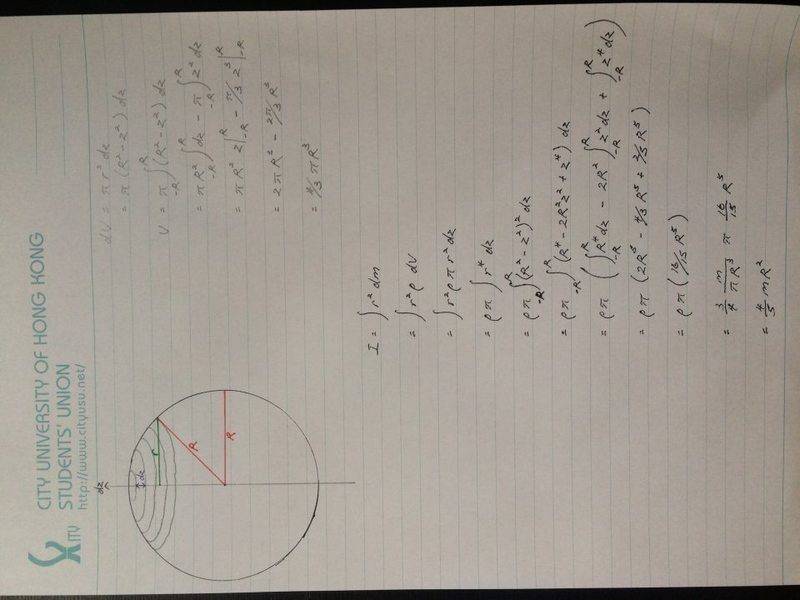 CITY
CITY UNIVERSITY OF HONG KONG
STUDENTS' UNION
http://www.cityusu.net/
dz
dz
r
R
R
dV = π r² dz
= π (R² - z²) dz
V = π ∫_{-R}^{R} (R² - z²) dz
= π R² ∫_{-R}^{R} dz - π ∫_{-R}^{R} z² dz
= π R² z |_{-R}^{R} - π/3 z³ |_{-R}^{R}
= 2 π R³ - 2π/3 R³
= 4/3 π R³
I = ∫ r² dm
= ∫ r² ρ dV
= ∫ r² ρ π r² dz
= ρ π ∫ r⁴ dz
= ρ π ∫_{-R}^{R} (R² - z²)² dz
= ρ π ∫_{-R}^{R} (R⁴ - 2R² z² + z⁴) dz
= ρ π ( ∫_{-R}^{R} R⁴ dz - 2R² ∫_{-R}^{R} z² dz + ∫_{-R}^{R} z⁴ dz )
= ρ π (2R⁵ - 4/3 R⁵ + 2/5 R⁵)
= ρ π (16/15 R⁵)
= 3/4 m/πR³ π 16/15 R⁵
= 4/5 mR²